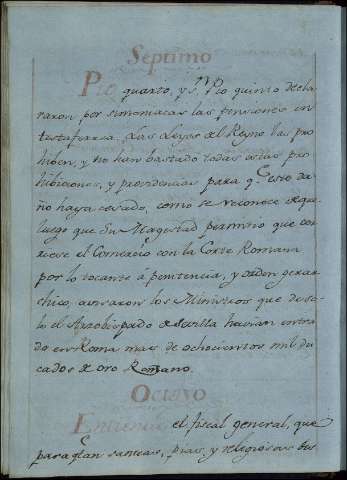 Septimo
Pio quarto, y Sn. Pio quinto decla-
raron por simoniacas las pensiones en
testaferrea. Las Leyes del Reyno las pro
hiben, y no han bastado todas estas pro
hibiciones, y providencias para qe. este da
ño haya cesado, como se reconoce de que
luego que Su Magestad permitio que cor
riese el Comercio con la Corte Romana
por lo tocante á penitencia, y orden gerar
chico, avisaron los Ministros que de so-
lo el Arzobispado de Sevilla havian entra
do en Roma mas de ochocientos mil du
cados de oro Romano.
Octavo
Entiende el fiscal general, que
para qe. tan santas, pias, y religiosas